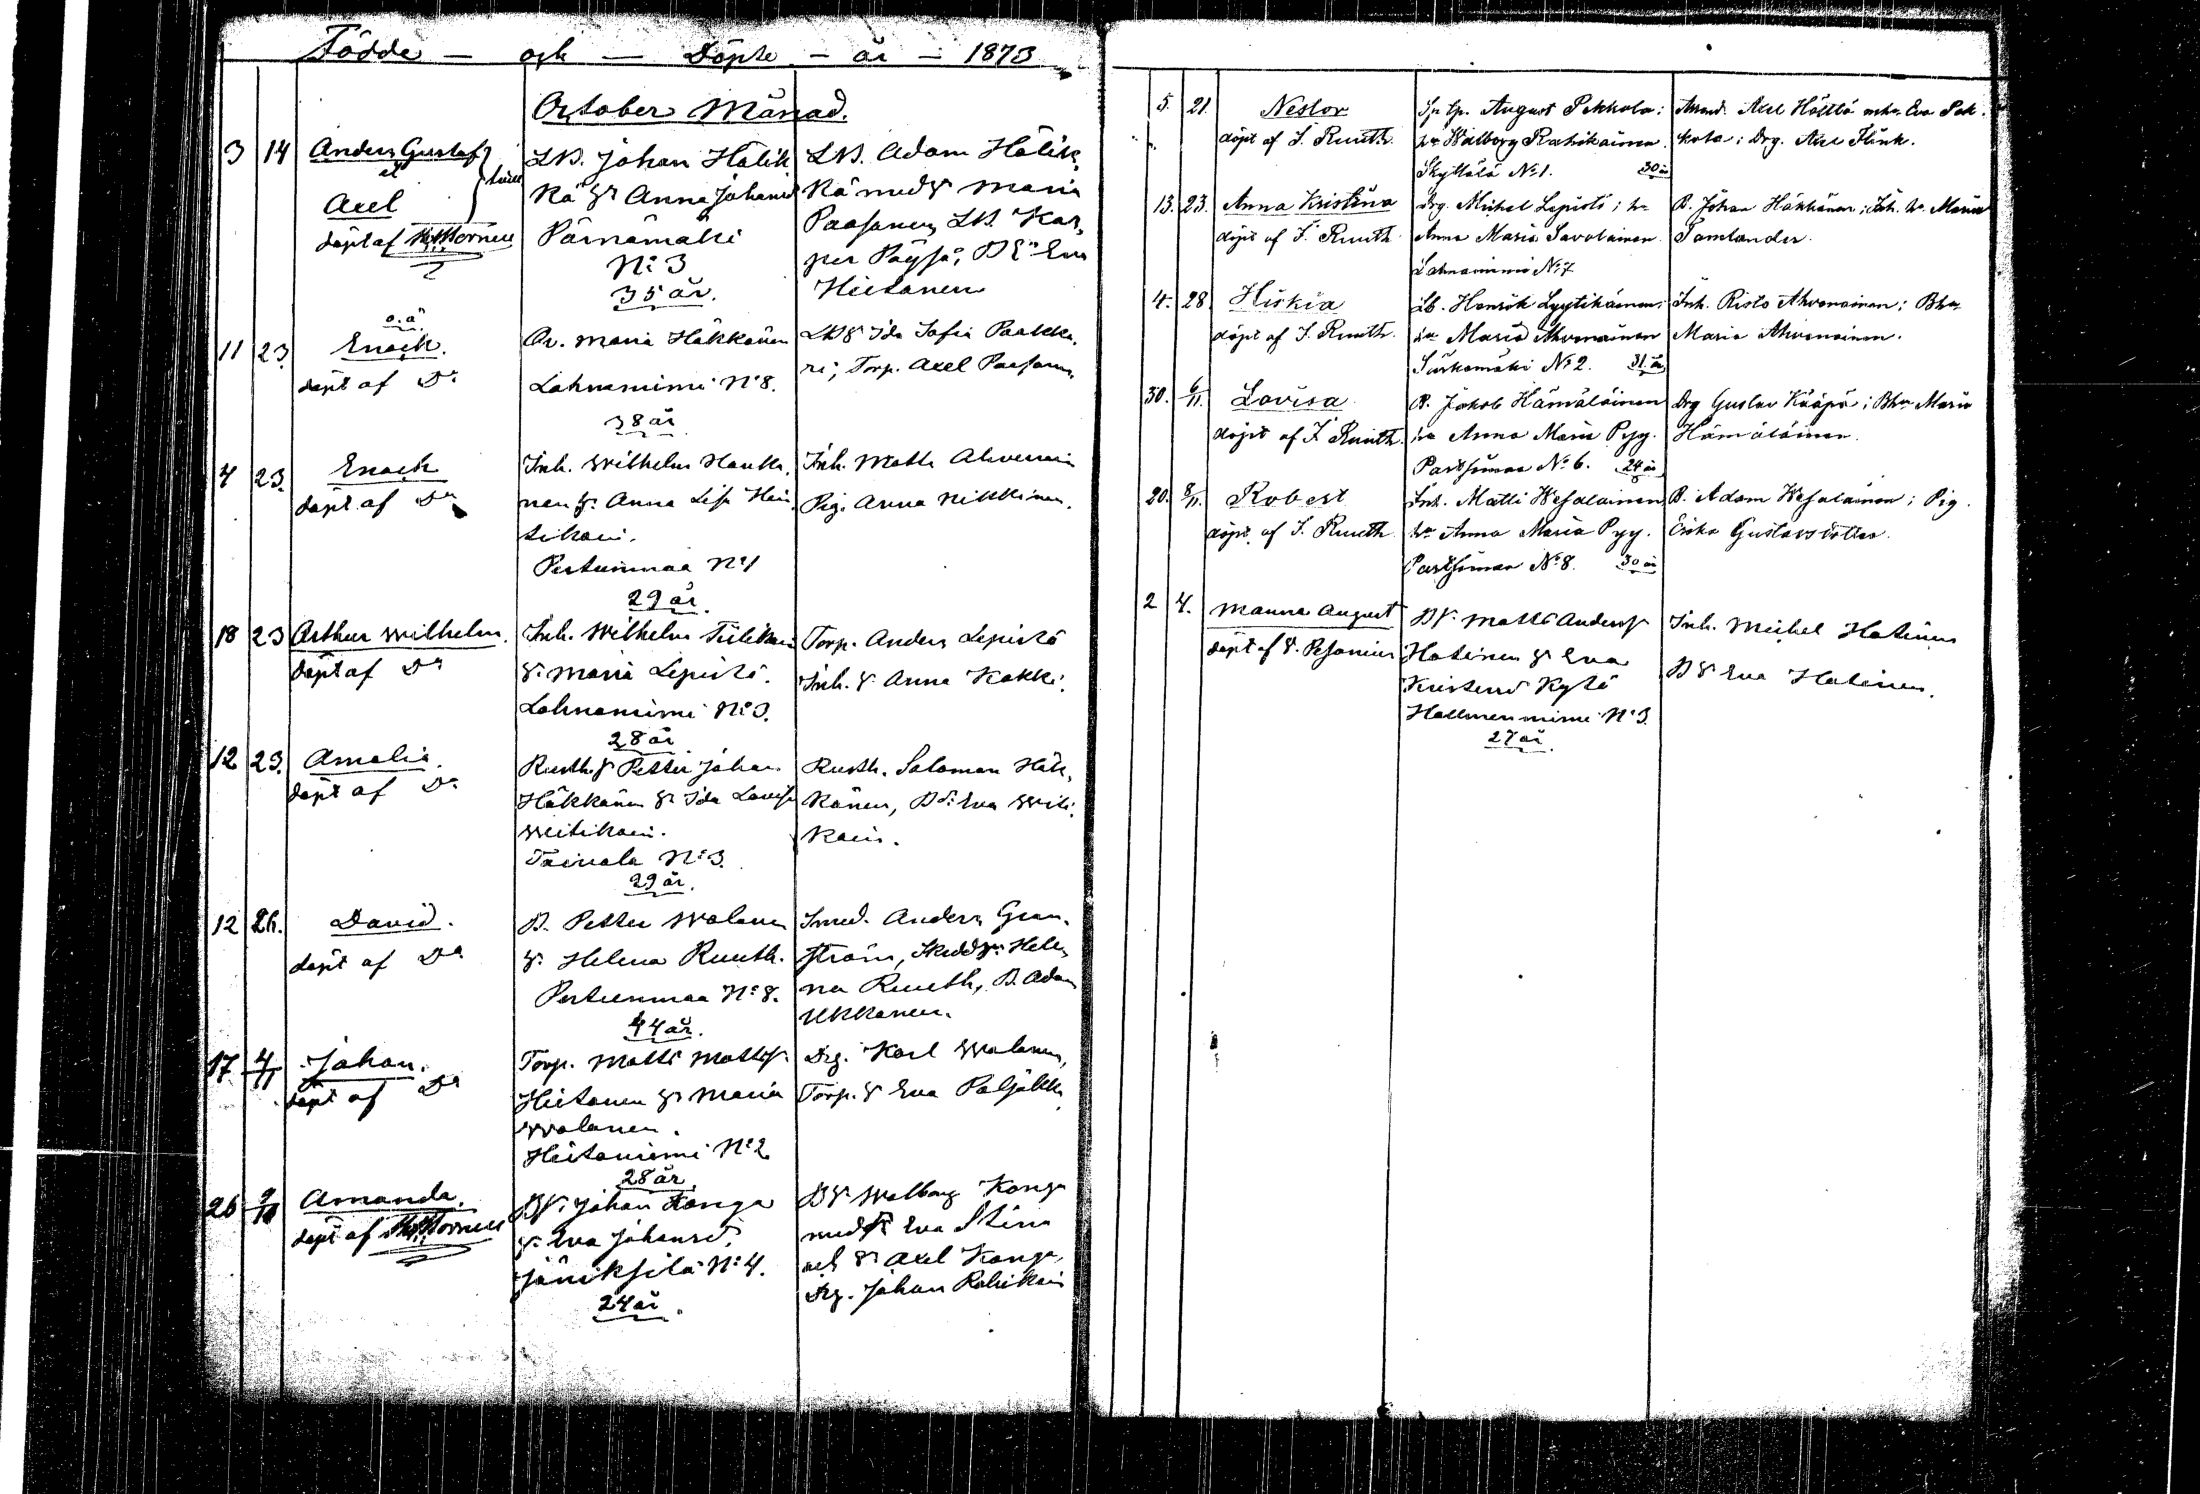 Födde — och — Döpte – år – 1873
October Månad.
3 14 Anders Gustaf
et
Axel
döpt af
LB. Johan Häkk
kä & Anna Johansd
Pärnämäki
N:o 3
35 år.
LB. Adam Häkk
kä med & Maria
Paasonen, LB. Kas
per Pöysä, Eva
Hietanen
o.ä.
11 23 Enock.
döpt af Do
Maria Häkkänen
Lahnaniemi N:o 8.
38 år
LB & Ida Sofia Paakka
ri, Torp. Axel Paasonen
4 23. Enock
döpt af Do
Inh. Wilhelm Hauta
nen & Anna Lisa Hein
tikain.
Pertunmaa N:o 1
29 år.
Inh. Matts Ahvenain
Pig. Anna Nikkinen.
18 23 Arthur Wilhelm.
döpt af Do
Inh. Wilhelm Tiilikain
& Maria Lepistö.
Lahnaniemi N:o 3.
28 år
Torp. Anders Lepistö
Inh. & Anna Kokki.
12 23. Amalia.
döpt af Do
Rusth. & Petter Johan
Häkkänen & Ida Lovisa
Witikain.
Toivola N:o 3.
29 år.
Rusth. Salomon Häk
känen, Eva Witi
kain.
12 26. David.
döpt af Do
B. Petter Walanen
& Helena Ruuth.
Pertunmaa N:o 8.
44 år.
Smed. Anders Gran
ström, Hele
na Ruuth, B. Adam
Ukkonen.
17. 4/11 Johan.
döpt af Do
Torp. Matts Mattss.
Hietanen & Maria
Walanen.
Hietaniemi N:o 2
28 år
Drg. Karl Walanen,
Torp. & Eva Paljakka
26 9/11 Amanda.
döpt af
Johan Konga
& Eva Johansd.
Jäniksilä N:o 4.
24 år.
B & Walborg Konga
med & Eva Stina
och & Axel Konga,
Drg. Johan Rahikain
5. 21. Nestor
döpt af J. Ruuth.
August Pekkola;
hu Walborg Rahikainen
Skyttälä No 1. 30 år
Axel Hölttä Eva Pek
kola; Drg. Axel Flink.
13. 23. Anna Kristina
döpt af J. Ruuth
Drg. Mikel Lepistö; hu
Anna Maria Savolainen
Lahnaniemi No 7
B. Johan Häkkänen; Inh. hu Maria
Tamlander.
4. 28. Hiskia
döpt af J. Ruuth.
Lb. Henrik Lyytikäinen;
hu Maria Ahvenainen
No 2. 31 år
Inh. Risto Ahvenainen; Bhu
Maria Ahvenainen.
30. 6/11. Lovisa
döpt af J. Ruuth.
B. Jakob Hämäläinen
hu Anna Maria Pyy.
Partsimaa No 6. 24 år
Drg Gustav Kääpä; Bhu Maria
Hämäläinen.
20. 8/11. Robert
döpt af J. Ruuth.
Inh. Matti Wesalainen
hu Anna Maria Pyy.
Partsimaa No 8. 30 år
B. Adam Wesalainen; Pig.
Erika Gustavsdotter.
2 4. Manne August
döpt af
Matts Anderss
Hatinen & Eva
Kristina Kytö
Hallmenniemi N:o 3.
27 år.
Inh. Michel Hatinen
B & Eva Hatinen.